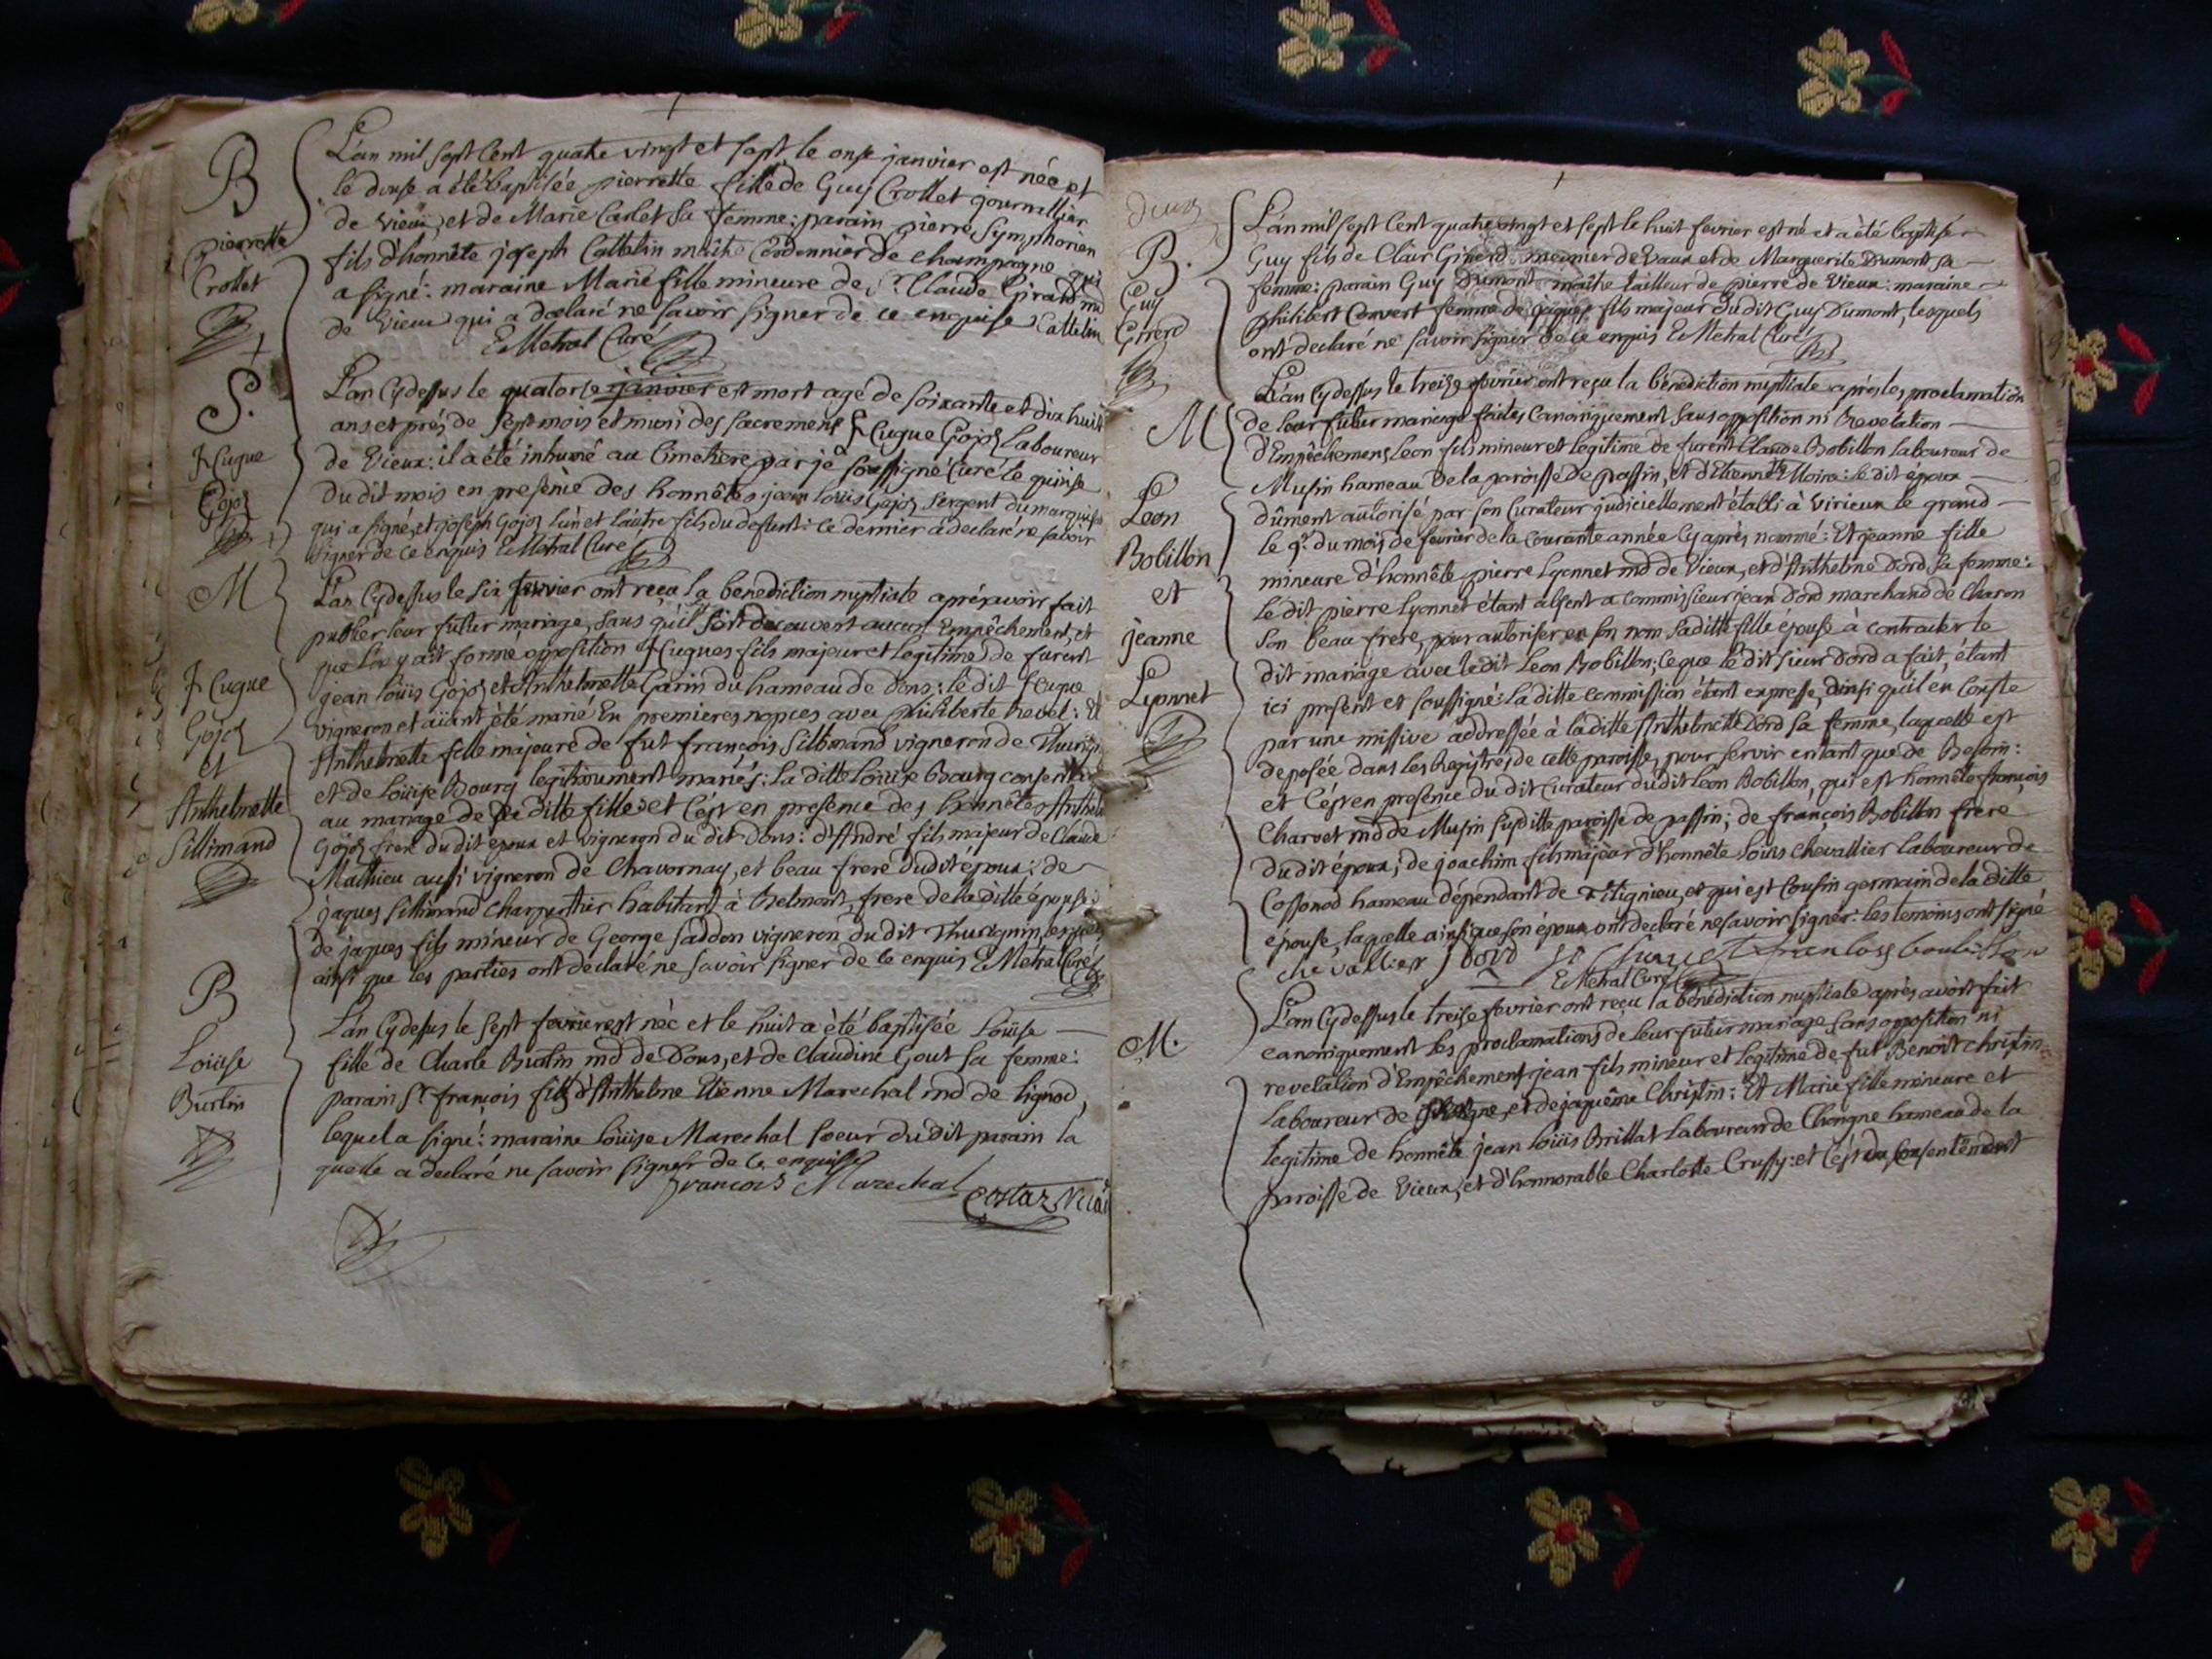 B
pierrette
Crollet
L'an mil sept Cent quatre vingt et sept le onse janvier est née et
le douse a été baptisée pierrette fille de Guy Crollet journallier
de Vieux, et de Marie Carlet sa femme: parain pierre Symphorien
fils d'honnête joseph Cattelin maître Cordonnier de champagne qui
a signé: maraine Marie fille mineure de Sr. Claude Girard md
de Vieux qui a déclaré ne savoir signer de ce enquise Cattelin
E Metral Curé
S.
Gojoz
L'an Cydessus le quatorse janvier est mort agé de soixante et dix huit
ans et près de Sept mois et muni des sacremens Gojoz Laboureur
de Vieux: il a été inhumé au Cimetiere par je soussigné Curé le quinse
du dit mois en presence des honnêtes jean loüis Gojoz Sergent du marquisat
qui a signé, et joseph Gojoz l'un et l'autre fils du deffunt: ce dernier a declaré ne savoir
signer de ce enquis E Metral Curé
M
Gojoz
et
Anthelmette
Sillimand
L'an Cydessus le six fevrier ont reçu la benediction nuptiale après avoir fait
publier leur futur mariage, sans qu'il soit decouvert aucun Empêchement, et
que l'on y ait formé opposition fils majeur et legitime de furent
jean loüis Gojoz et Anthelmette Garin du hameau de Dons: le dit
vigneron et aïiant été marié En premieres nopces avec philiberte Revel: Et
Anthelmette fille majeure de fut françois Sillimand vigneron de
et de Loüise Bourg legitimement mariés: la ditte Loüise Bourg consentant
au mariage de sa ditte fille: et c'est en presence des honnêtes
Gojoz frere du dit époux et vigneron du dit Dons: d'André fils majeur de Claude
Mathieu aussi vigneron de Chavornay, et beau frere du dit époux: de
jaques Sillimand charpentier habitant à Belmont, frere de la ditte épouse:
de jaques fils mineur de George vigneron du dit lesquels
ainsi que les parties ont déclaré ne savoir signer de ce enquis E Metral Curé
B
Loüise
Burlin
L'an Cydessus le Sept fevrier est née et le huit a été baptisée Loüise
fille de Charle Burlin md de Dons, et de Claudine Gout sa femme:
parain Sr. françois fils d'Anthelme Etienne Marechal md de Lignod,
lequel a signé: maraine Loüise Marechal soeur du dit parain la
quelle a declaré ne savoir signer de ce enquise
francois Marechal
Costaz
deux
B.
Guy
Girerd
L'an mil sept Cent quatre vingt et sept le huit fevrier est né et a été baptisé
Guy fils de Clair Girerd meunier de Vaux et de Marguerite Dumont sa
femme: parain Guy Dumont maître tailleur de pierre de Vieux: maraine
philibert Convert femme de jaques fils majeur du dit Guy Dumont, lesquels
ont declaré ne savoir signer de ce enquis E Metral Curé
M
Leon
Bobillon
et
jeanne
Lyonnet
L'an Cydessus le treize fevrier ont reçu la bénédiction nuptiale après les proclamations
de leur futur mariage faites Canoniquement sans opposition ni Revelation
d'Empêchemens Leon fils mineur et legitime de furent Claude Bobillon laboureur de
Musin hameau de la paroisse de passin, et d'Etiennette Moine: le dit époux
dûment autorisé par son Curateur judiciellement établi à Virieux le grand
le 9e. du mois de fevrier de la courante année cy après nommé: Et jeanne fille
mineure d'honnête pierre Lyonnet md de Vieux, et d'Anthelme Dord sa femme:
Le dit pierre Lyonnet étant absent a commis sieur jean Dord marchand de Charon
son beau frere, pour autoriser en son nom sa ditte fille épouse à contracter le
dit mariage avec le dit Leon Bobillon; ce que le dit sieur Dord a fait, étant
ici présent et soussigné: la ditte commission étant expresse, ainsi qu'il en conste
par une missive addressée à la ditte Anthelmette Dord sa femme, laquelle est
deposée dans les Registres de cette paroisse, pour servir en tant que de Besoin:
et c'est en presence du dit Curateur du dit Leon Bobillon, qui est honnête françois
Charvet md de Musin susditte paroisse de passin; de françois Bobillon frere
du dit époux; de joachim fils majeur d'honnête Loüis Chevallier laboureur de
Cossonod hameau dépendant de fitignieu, et qui est Cousin germain de la ditte
épouse, laquelle ainsi que son époux ont declaré ne savoir signer: les temoins ont signé
chevallier J Dord francois boubillon
E Metral Curé
M.
L'an Cydessus le treise fevrier ont reçu la bénédiction nuptiale après avoir fait
canoniquement les proclamations de leur futur mariage sans opposition ni
revelation d'Empêchemens jean fils mineur et legitime de fut Benoit christin
laboureur de et de jaquême Christin: Et Marie fille mineure et
legitime de honnête jean loüis Brillat laboureur de Chongne hameau de la
paroisse de Vieux, et d'honnorable Charlotte Crussy: et c'est du consentement